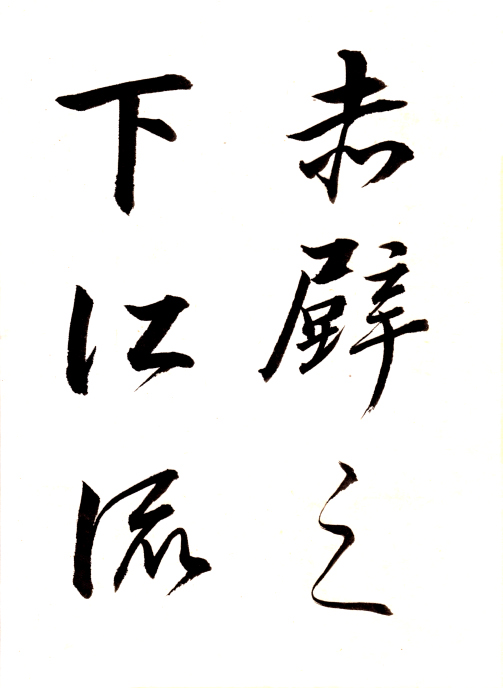 赤壁之
下江流